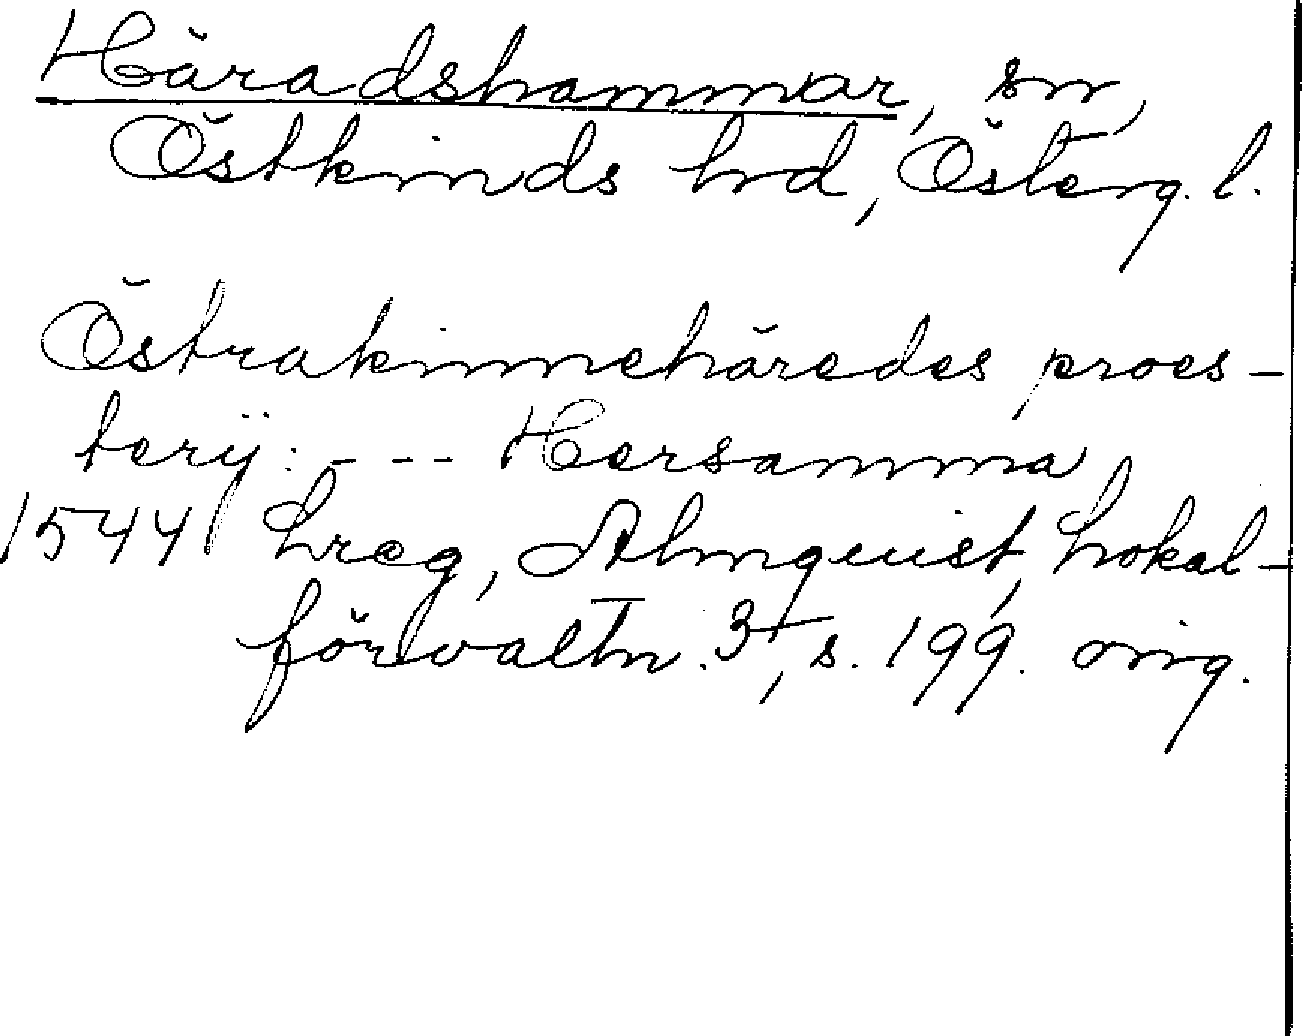 Häradshammar, sn,
Östkinds hrd, Österg. l.
Östrakinnehäredes proes-
terij: --- Hersamma
1544 Lreg, Almquist, Lokal-
förvaltn. 3, s. 199. orig.